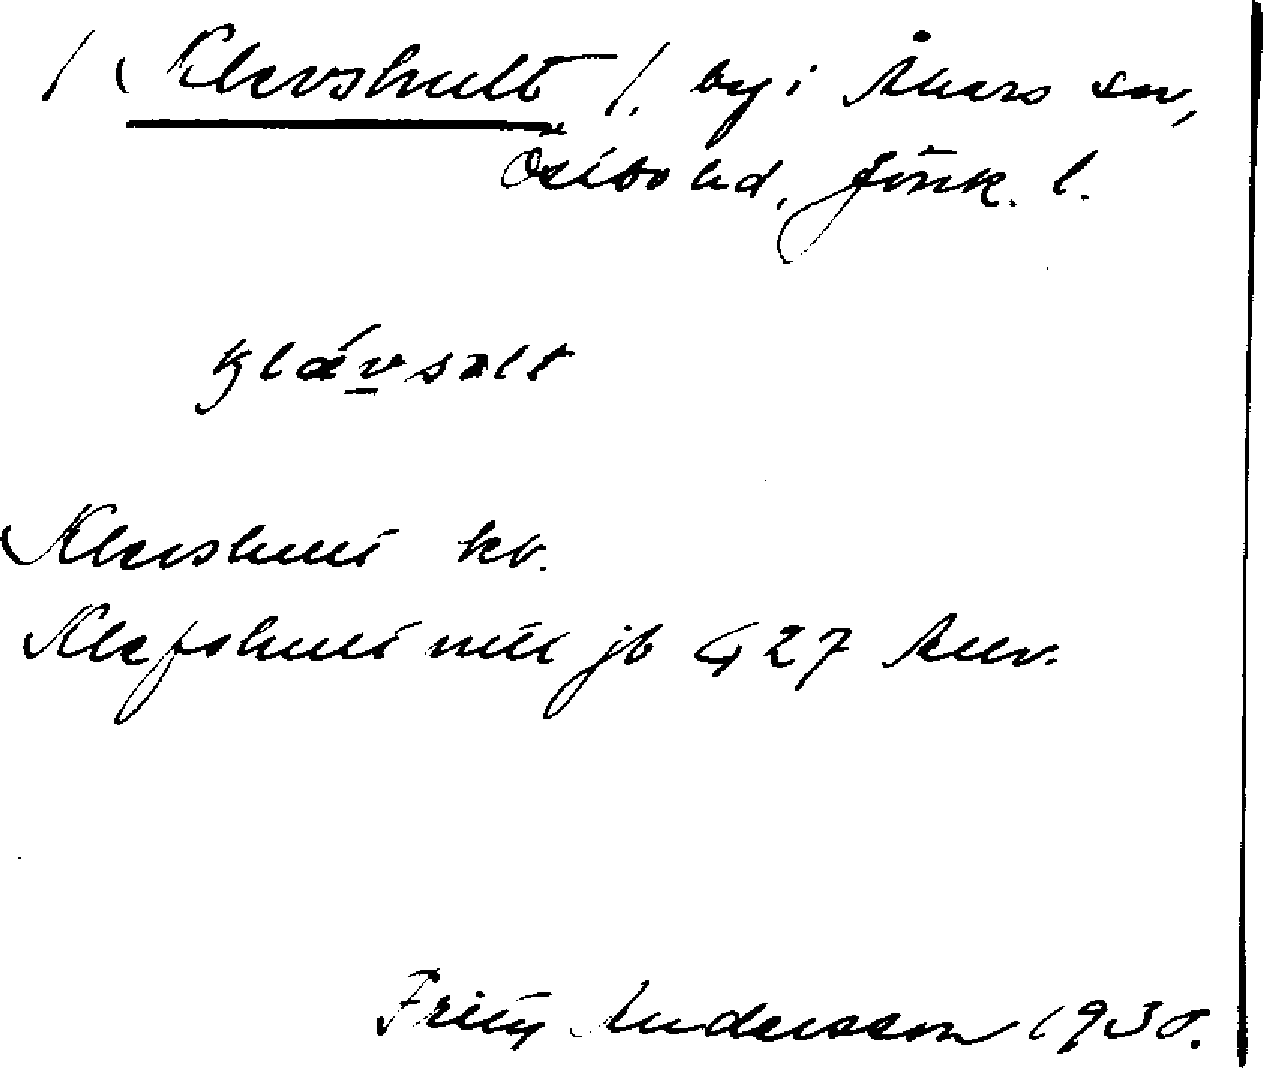 / Klevshult /. by i Åkers sn,
Östbo hd, Jönk. l.
klävsalt
Klevshult kb.
Klefshult jb 427
Fritz Andersson 1930.